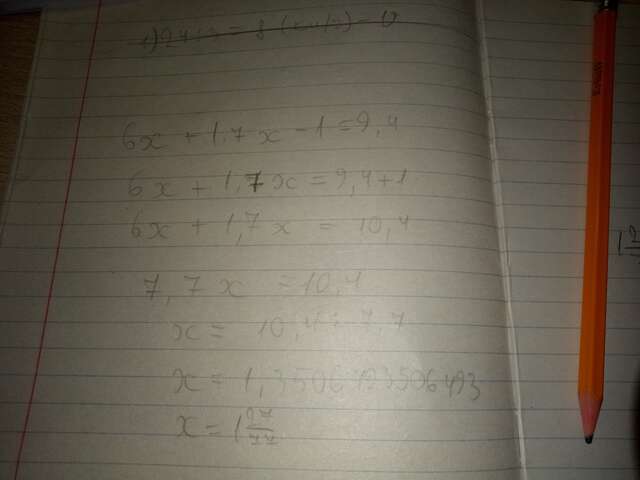 6x + 1,7x - 1 = 9,4
6x + 1,7x = 9,4 + 1
6x + 1,7x = 10,4
7,7x = 10,4
x = 10,4 : 7,7
x = 1,3506493506493
x = 1 27/77